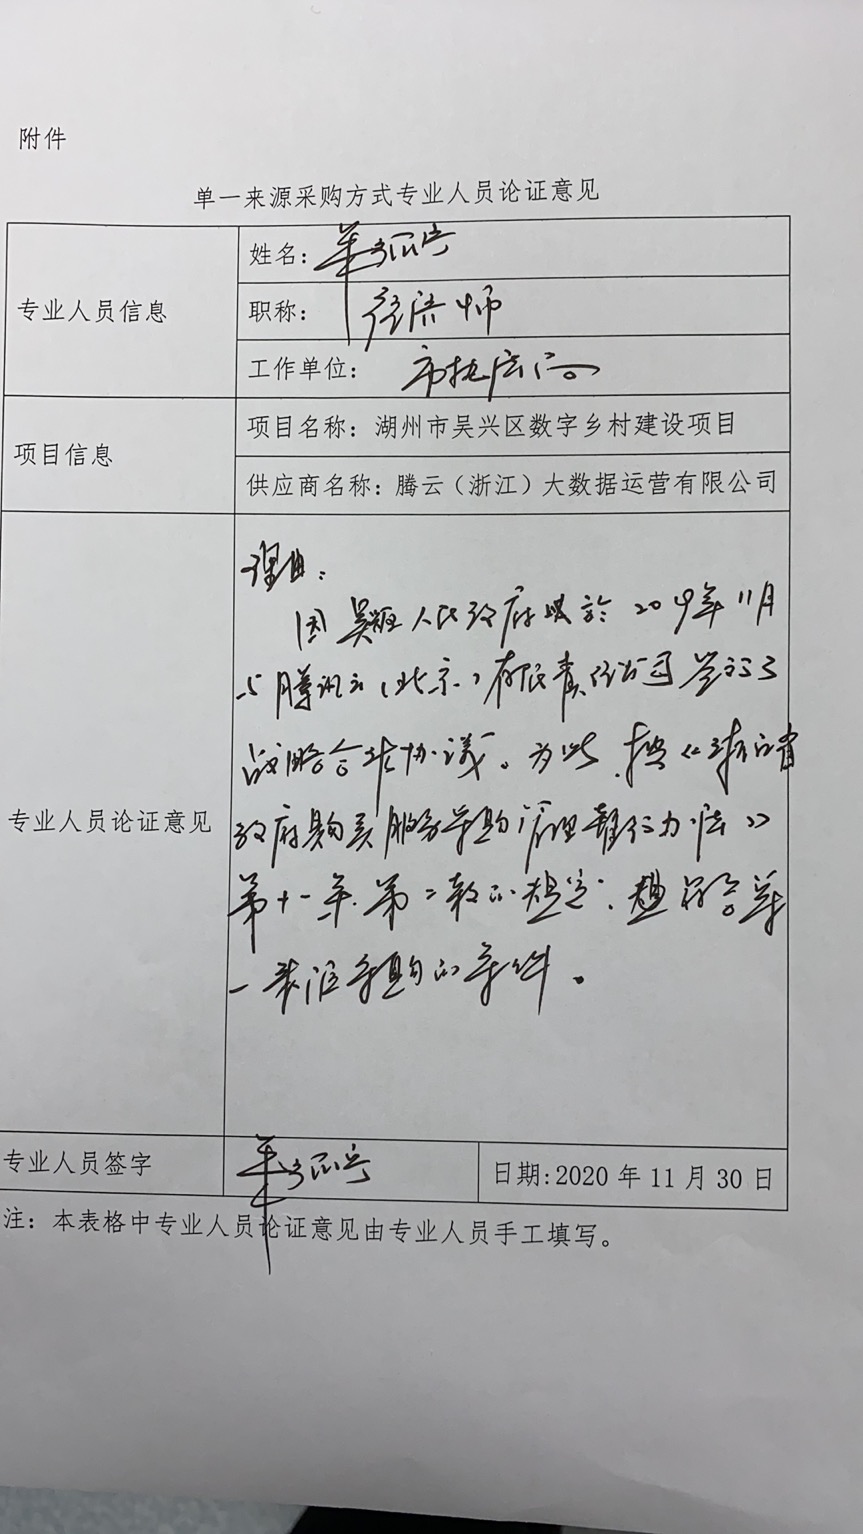 附件
单一来源采购方式专业人员论证意见
专业人员信息
姓名:
职称: 经济师
工作单位: 市执法局
项目信息
项目名称: 湖州市吴兴区数字乡村建设项目
供应商名称: 腾云(浙江)大数据运营有限公司
专业人员论证意见
理由:
因吴兴区人民政府 於2019年11月
与腾讯云(北京)有限责任公司签订了
战略合作协议。为此, 按《浙江省
政府购买服务采购管理暂行办法》
第十一条第二款的规定, 符合单
一来源采购的条件。
专业人员签字
日期:2020年11月30日
注: 本表格中专业人员论证意见由专业人员手工填写。